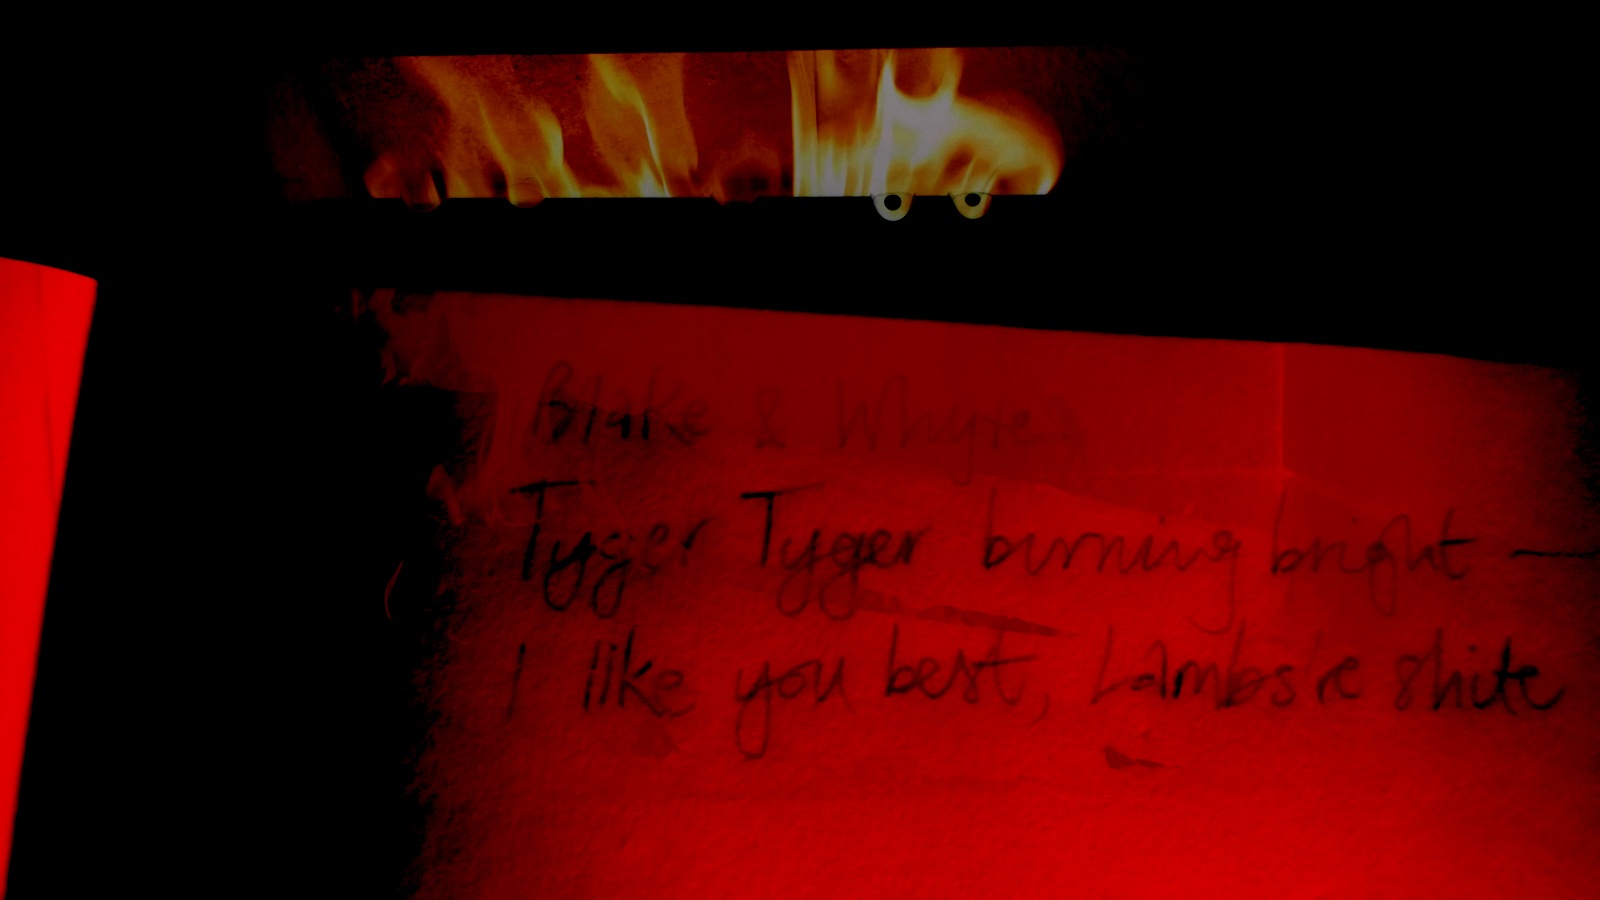 Blake & Whyte
Tyger Tyger burning bright —
I like you best, Lambs're shite